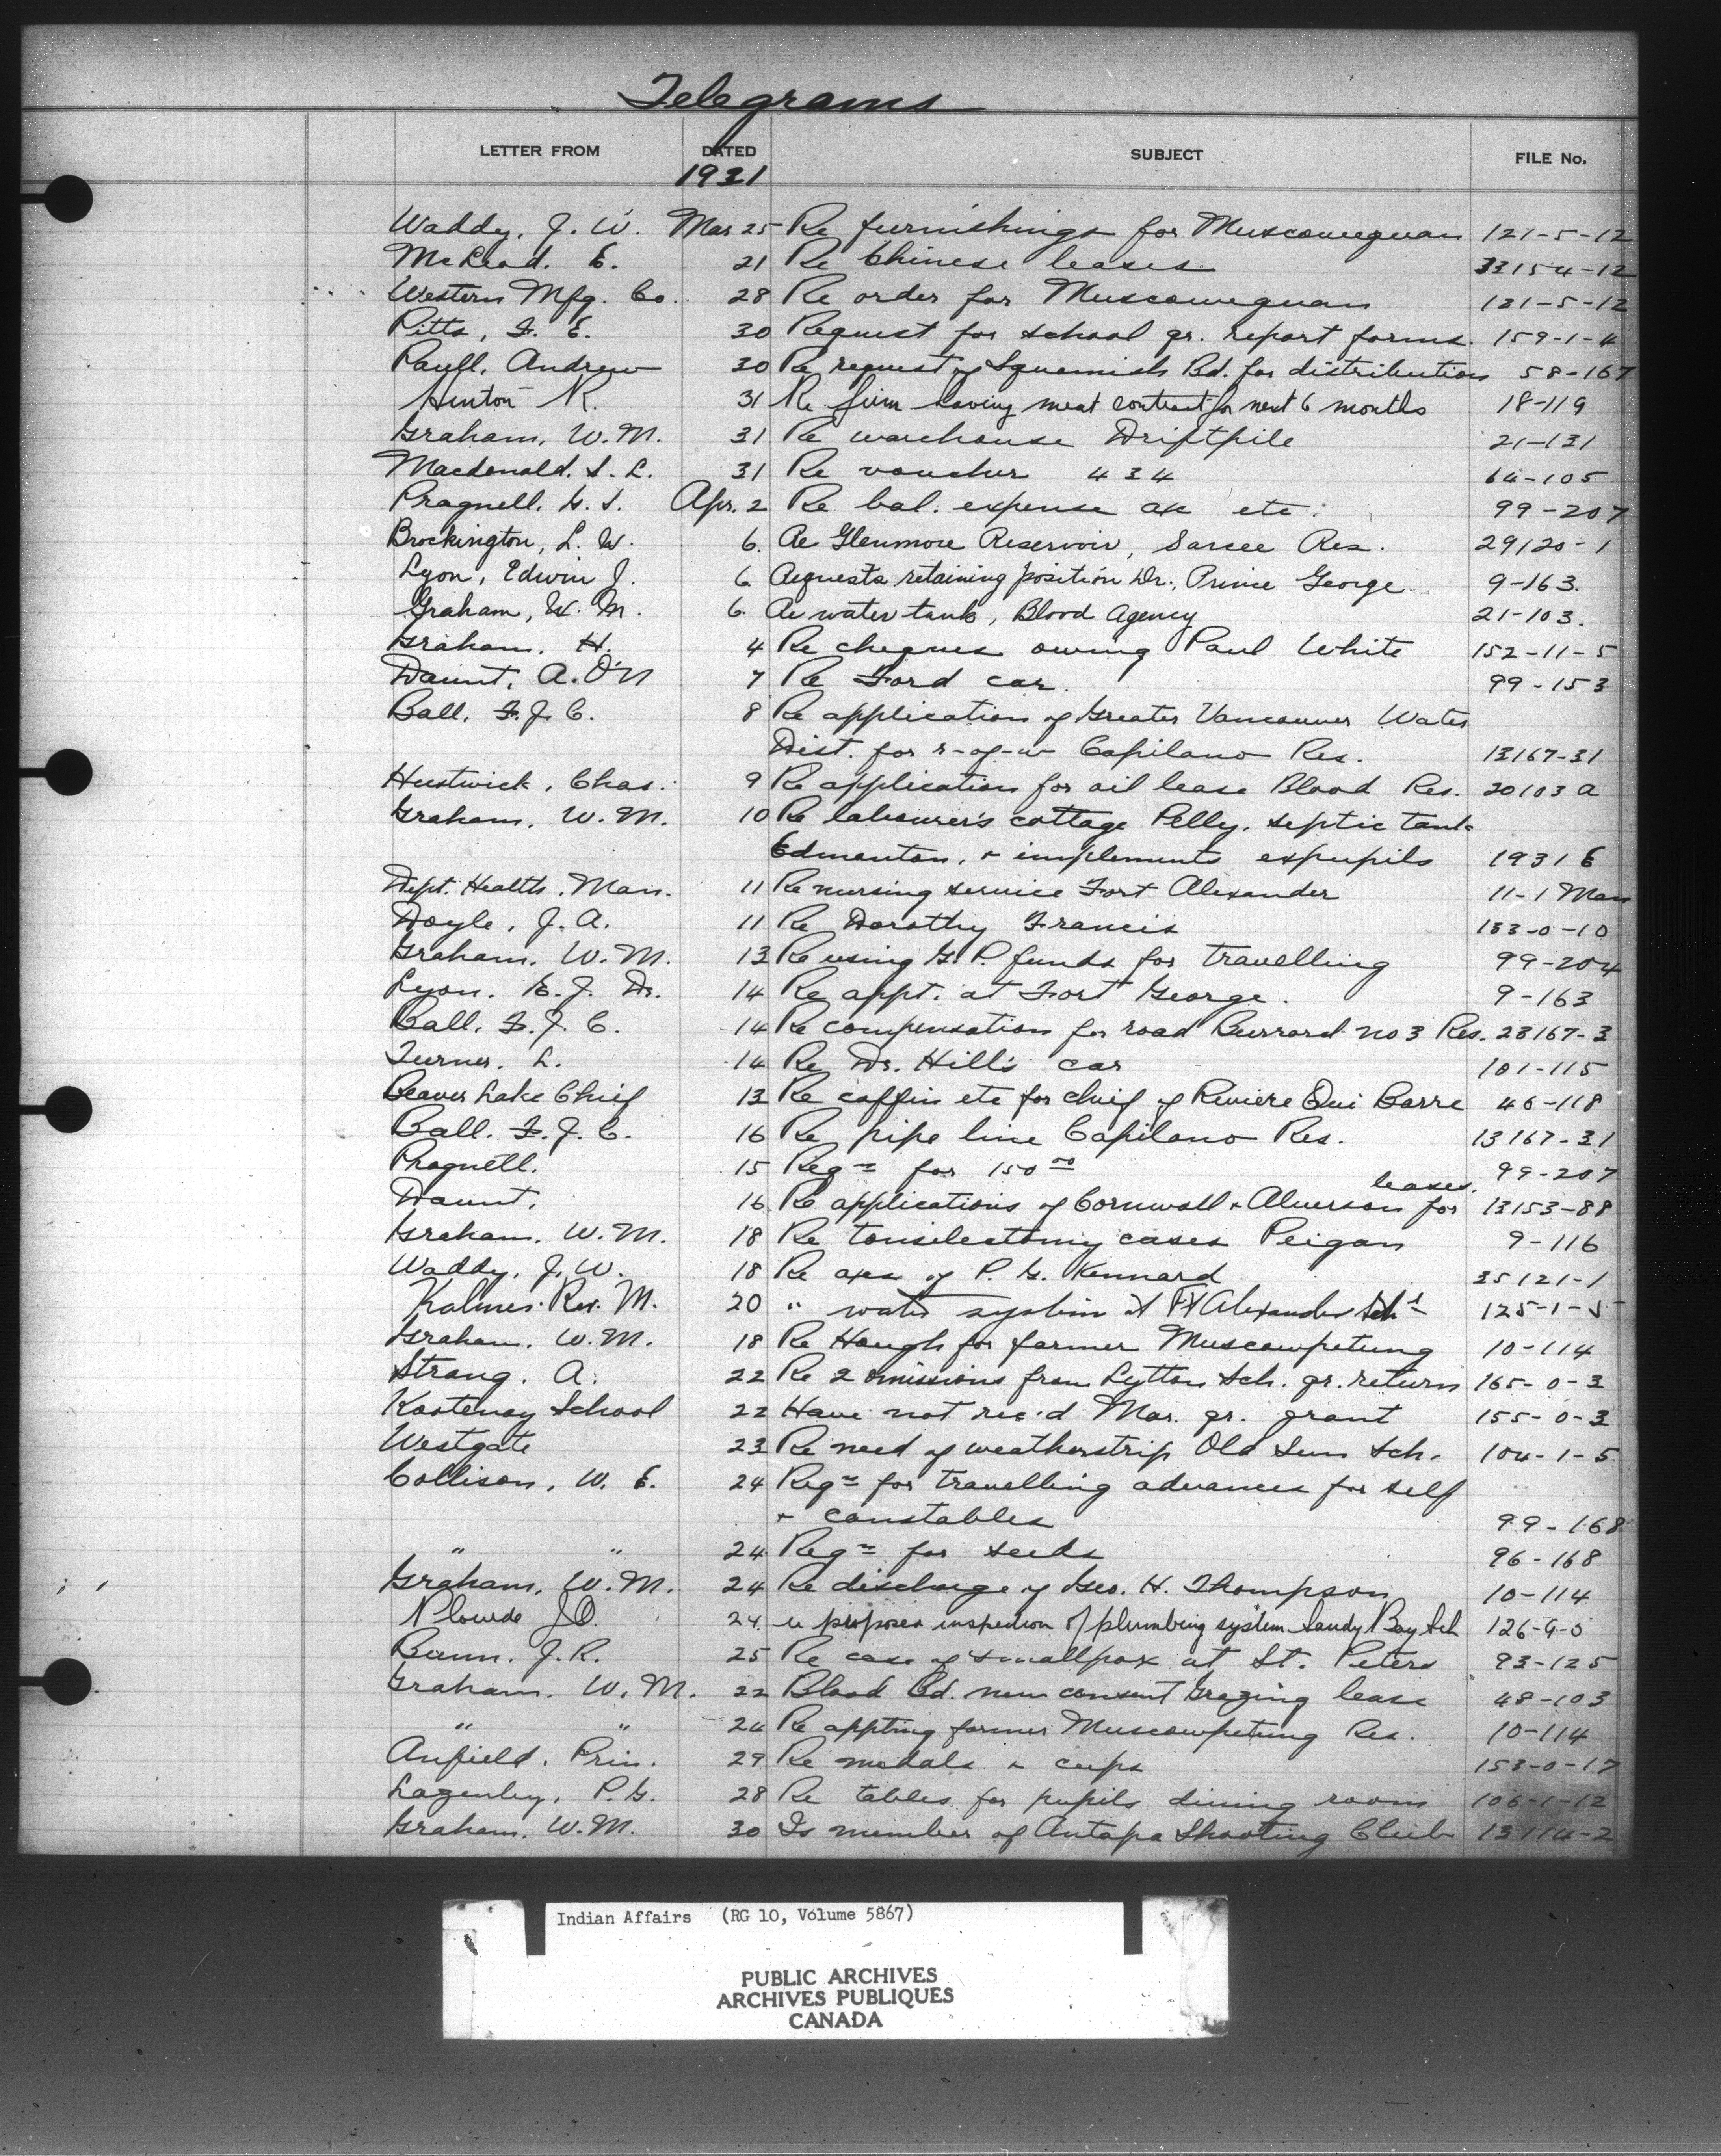 Telegrams
LETTER FROM DATED SUBJECT FILE No.
1931
Waddy, J. W. Mar 25 Re furnishings for Muscowequan 121-5-12
McLeod. E. 21 Re Chinese leases 33154-12
Western Mfg. Co. 28 Re order for Muscowequan 121-5-12
Pitts, F. E. 30 Request for school qr. report forms. 159-1-4
Paull, Andrew 30 Re request of Squamish Bd. for distribution 58-167
Hinton R. 31 Re firm having meat contract for next 6 months 18-119
Graham, W. M. 31 Re warehouse Driftpile 21-131
Macdonald. S. L. 31 Re voucher 434 64-105
Pragnell, G. S. Apr. 2 Re bal. expense a/c etc. 99-207
Brockington, L. W. 6. Re Glenmore Reservoir, Sarcee Res. 29120-1
Lyon, Edwin J. 6. Requests retaining position Dr., Prince George 9-163.
Graham, W. M. 6. Re water tank, Blood Agency 21-103.
Graham. H. 4 Re cheques owing Paul White 152-11-5
Daunt, A. O'N 7 Re Ford car. 99-153
Ball, F. J. C. 8 Re application of Greater Vancouver Water
Dist. for r-of-w Capilano Res. 13167-31
Hustwick, Chas. 9 Re application for oil lease Blood Res. 20103 A
Graham, W. M. 10 Re labourer's cottage Pelly, septic tank
Edmonton, + implements expupils 1931 E
Dept. Health. Man. 11 Re nursing service Fort Alexander 11-1 Man
Doyle, J. A. 11 Re Dorothy Francis 153-0-10
Graham. W. M. 13 Re using G. P. funds for travelling 99-204
Lyon. E. J. Dr. 14 Re appt. at Fort George. 9-163
Ball. F. J. C. 14 Re compensation for road Burrard no 3 Res. 23167-3
Turner. L. 14 Re Dr. Hill's car 101-115
Beaver Lake Chief 13 Re coffin etc for chief of Riviere Qui Barre 40-118
Ball. F. J. C. 16 Re pipe line Capilano Res. 13167-31
Pragnell. 15 Reqn for 150 00 99-207
Daunt. 16 Re applications of Cornwall + Alverson for leases. 13153-88
Graham. W. M. 18 Re tonsilectomy cases Peigan 9-116
Waddy, J. W. 18 Re axes of P. G. Kennard 35121-1
Kalmes Rev. M. 20 " water system at Ft Alexander Schl 125-1-5
Graham. W. M. 18 Re Hough for farmer Muscowpetung 10-114
Strang. A. 22 Re 2 omissions from Lytton Sch. qr. return 165-0-3
Kootenay School 22 Have not rec'd Mar. qr. grant 155-0-3
Westgate 23 Re need of weatherstrip Old Sun Sch. 104-1-5
Collison, W. E. 24 Reqn for travelling advances for self
+ constables 99-168
" " 24 Reqn for seeds 96-168
Graham, W. M. 24 Re discharge of Geo. H. Thompson 10-114
Plourde J O. 24. re proposed inspection of plumbing system Sandy Bay Sch 126-9-5
Bunn. J. R. 25 Re case of smallpox at St. Peters 93-125
Graham. W. M. 22 Blood Bd. now consent grazing lease 48-103
" " 24 Re appting farmer Muscowpetung Res. 10-114
Anfield. Prin. 29 Re medals + cups 153-0-17
Lazenby, P. G. 28 Re tables for pupils dining room 106-1-12
Graham. W. M. 30 Is member of Shooting Club 13114-2
Indian Affairs (RG 10, Volume 5867)
PUBLIC ARCHIVES
ARCHIVES PUBLIQUES
CANADA